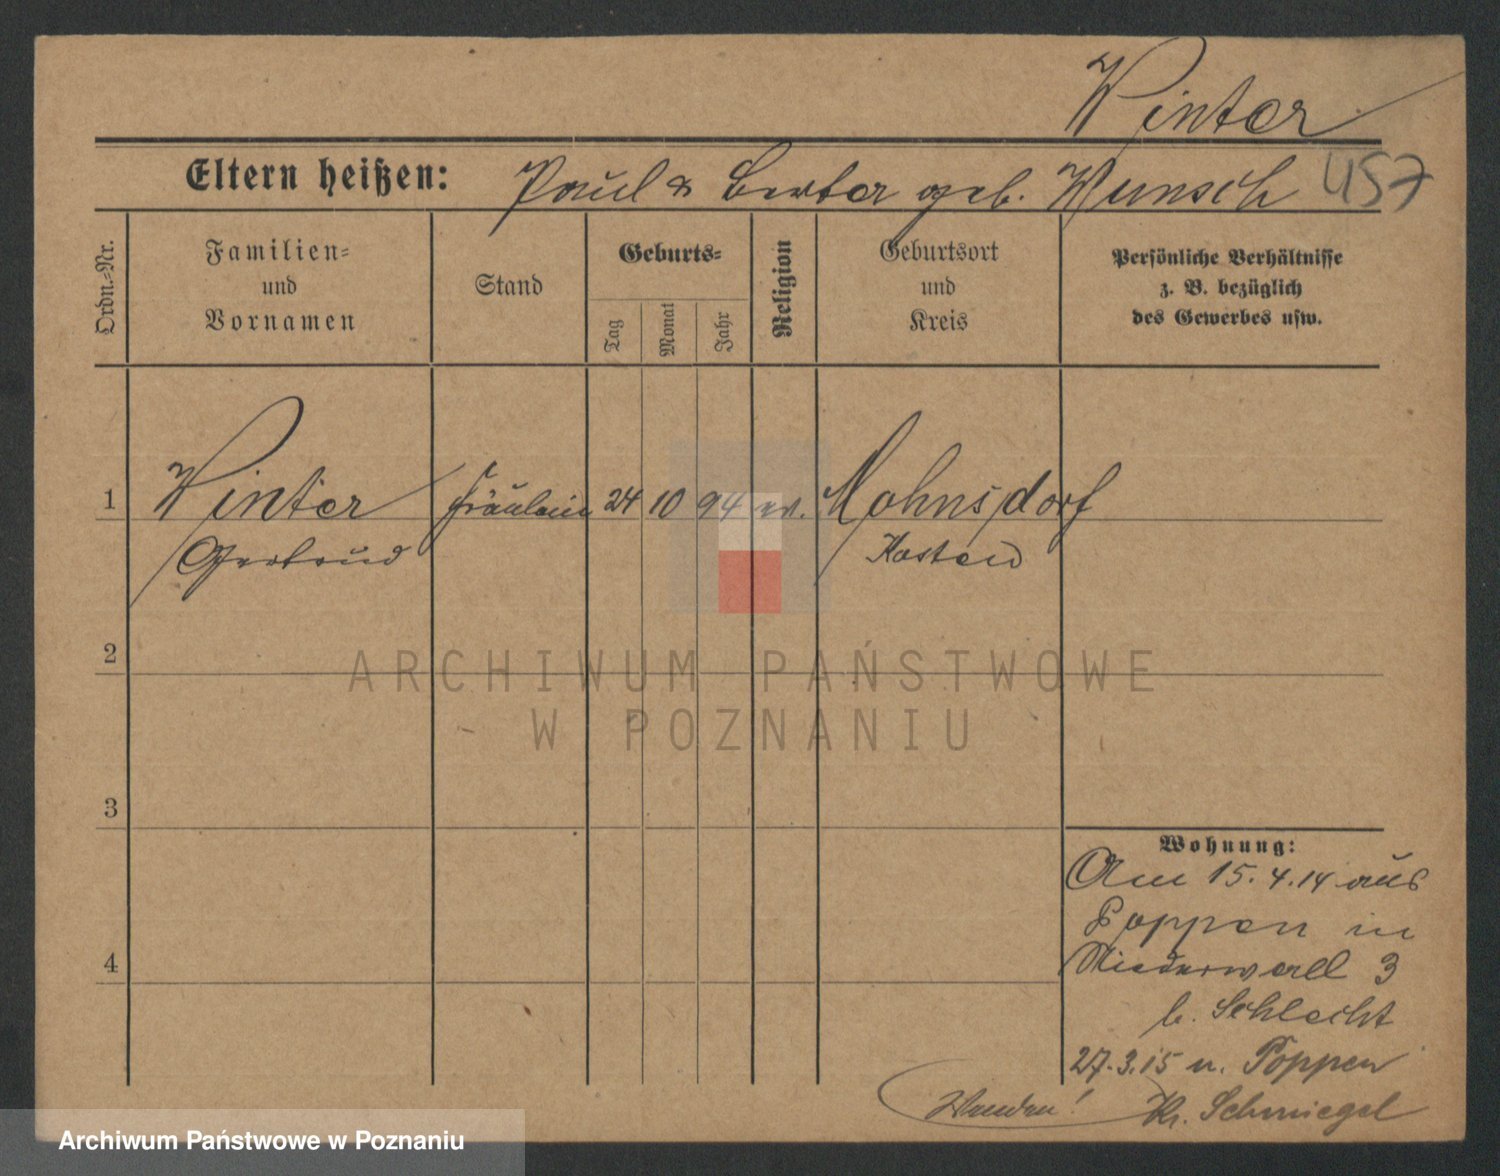 Winter
Eltern heißen: Paul & Berta geb. Wunsch 457
Ordn.-Nr.
Familien- und Vornamen
Stand
Geburts-
Tag
Monat
Jahr
Religion
Geburtsort und Kreis
Persönliche Verhältnisse
z. B. bezüglich
des Gewerbes usw.
1 Winter Fräulein 24 10 94 ev. Mohnsdorf
Gertrud Kosten
2
ARCHIWUM PAŃSTWOWE
W POZNANIU
3
Wohnung:
Am 15.4.14 aus
Poppen in
4
Niederwall 3
b. Schlecht
27.3.15 n. Poppen
Wenden! Kr. Schmiegel
Archiwum Państwowe w Poznaniu